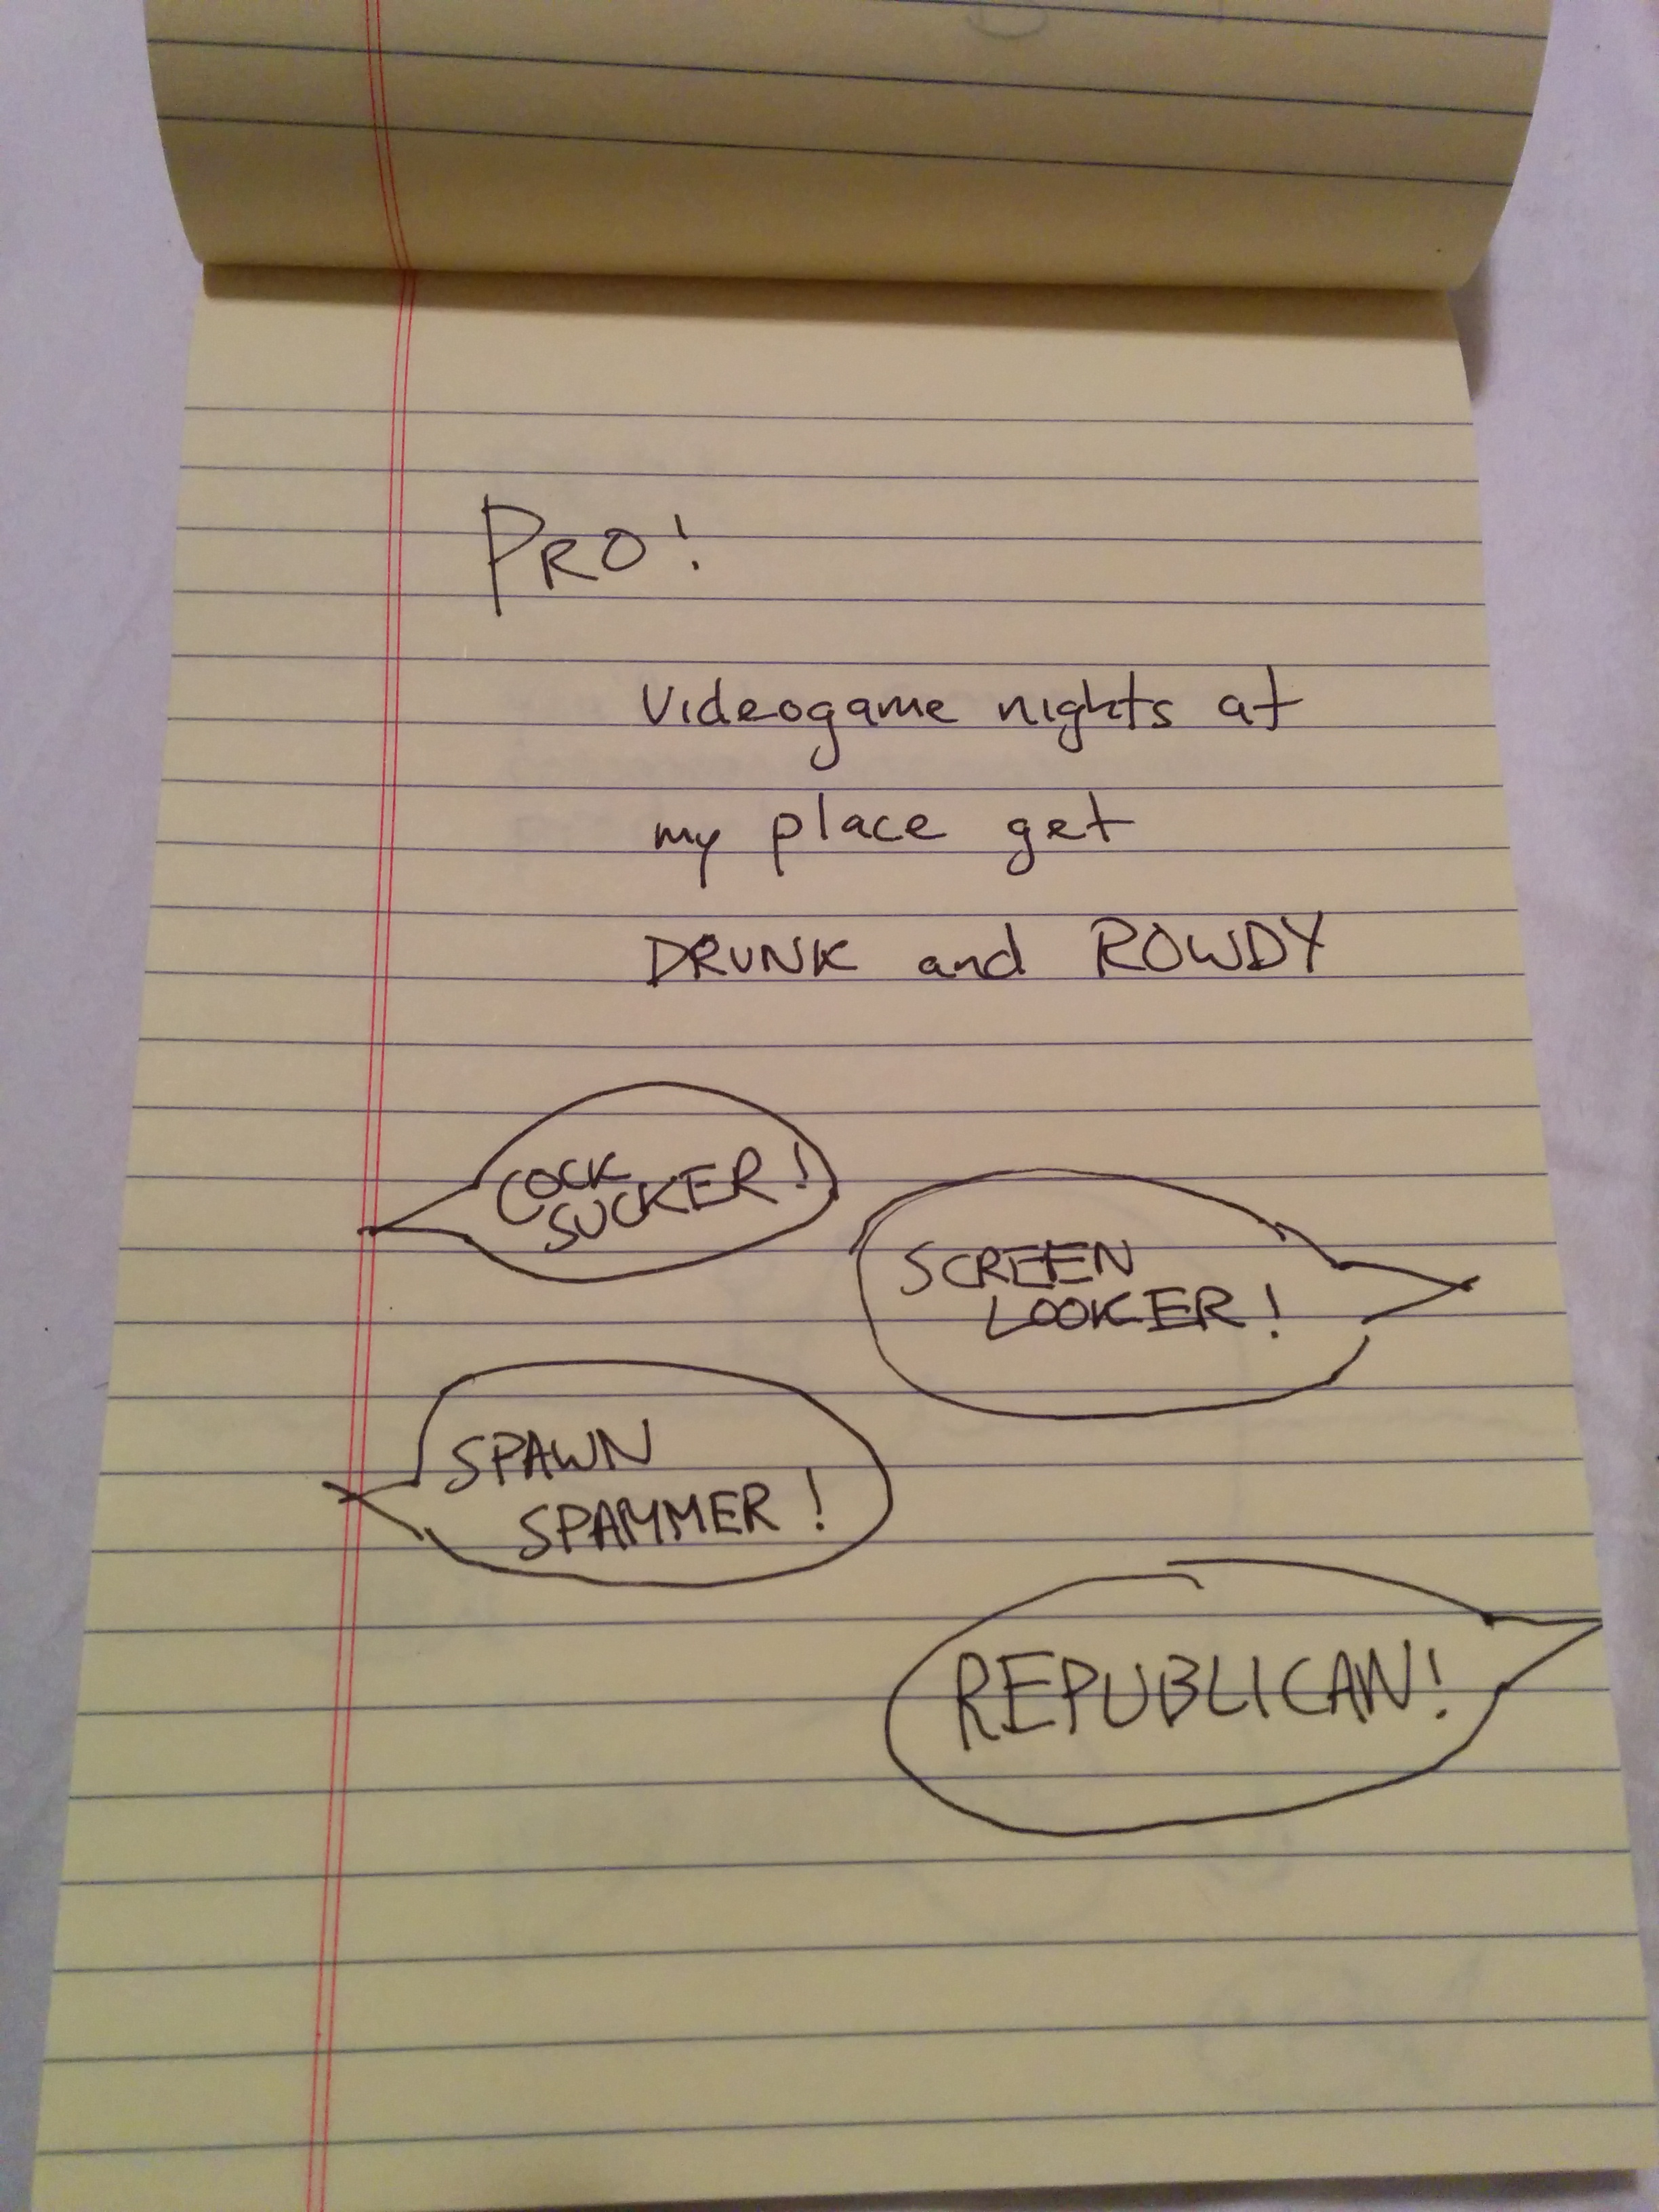 PRO!
Videogame nights at
my place get
DRUNK and ROWDY
COCK
SUCKER!
SCREEN
LOOKER!
SPAWN
SPAMMER!
REPUBLICAN!